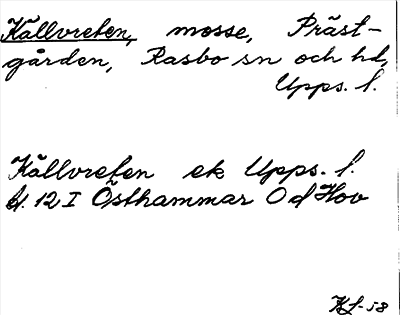 Källvreten, mosse, Präst-
gården, Rasbo sn och hd,
Upps. l.
Källvreten ek Upps. l.
bl. 12 I Östhammar O d Hov
-58